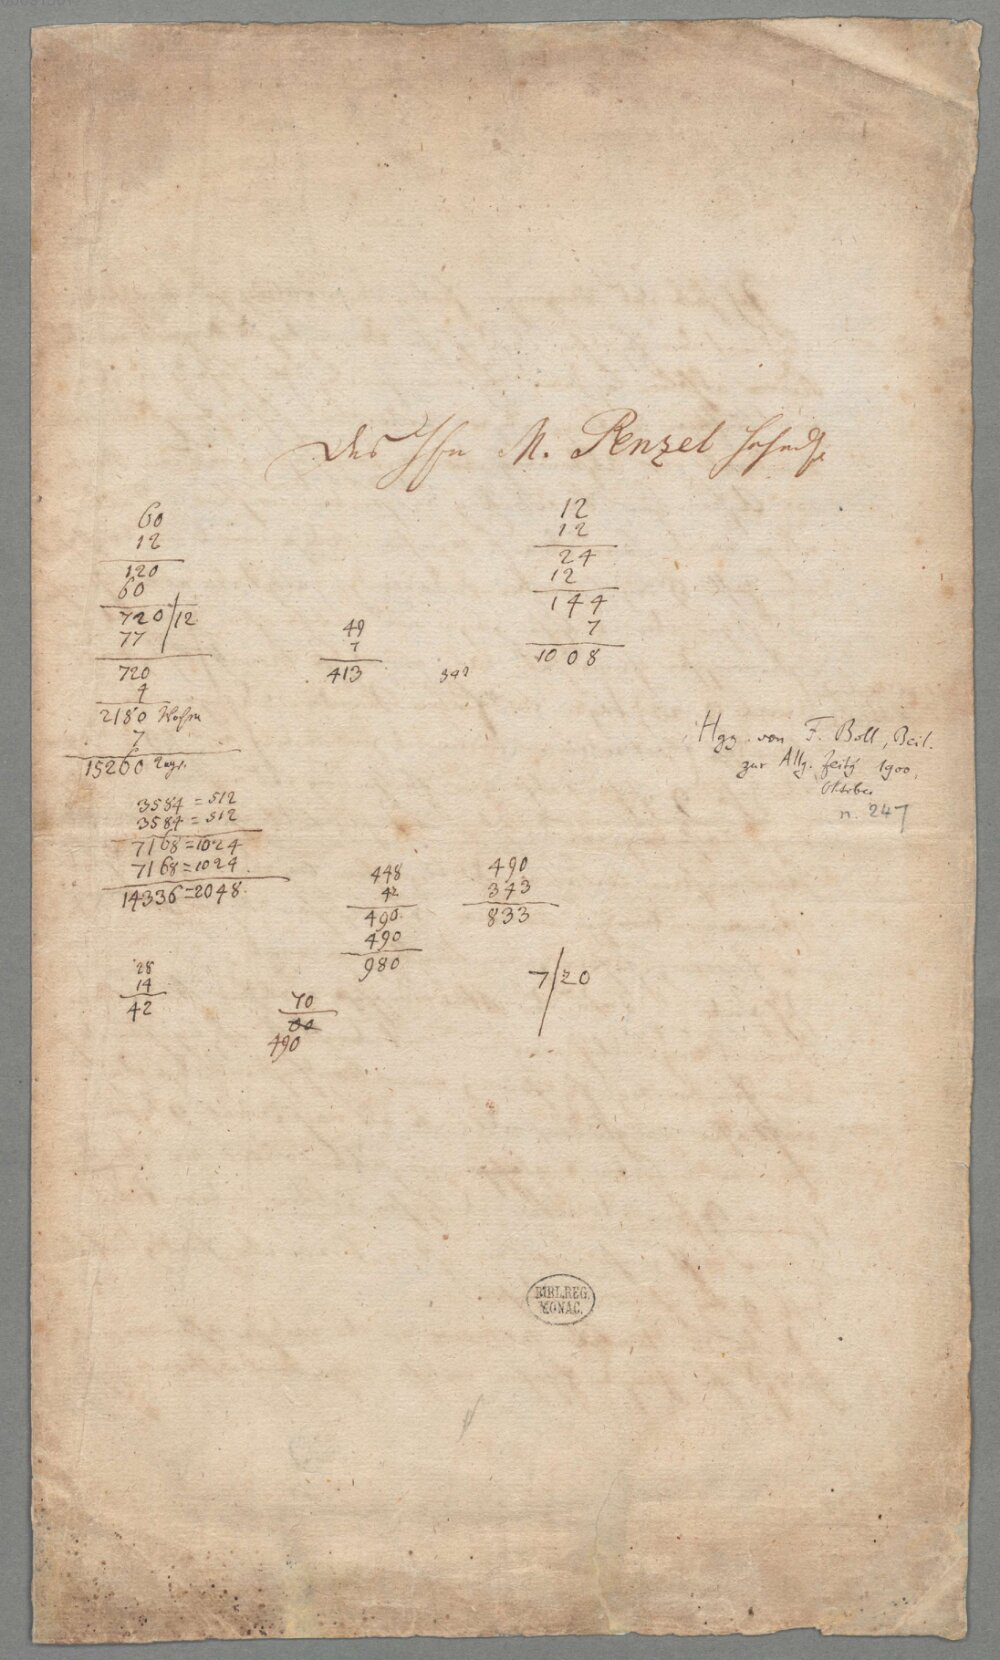 Des Hrn M. Penzel
60
12
120
60
720/12
77
720
4
2180 Wochen
7
15260 Tage.
49
7
413
343
12
12
24
12
144
7
1008
Hgg. von F. Boll, Beil.
zur Allg. Zeitg 1900,
Oktober
n. 247
3584 = 512
3584 = 512
7168 = 1024
7168 = 1024
14336 = 2048.
448
42
490
490
980
490
343
833
28
14
42
70
490
7/20
BIBL.REG.
MONAC.